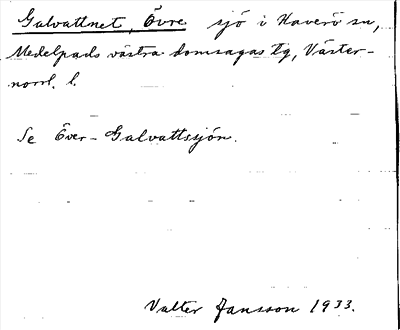 Galvattnet, Övre sjö i Haverö sn,
Medelpads västra domsagas tlg, Väster-
norrl. l.
Se Över-Galvattssjön.
Valter Jansson 1933.